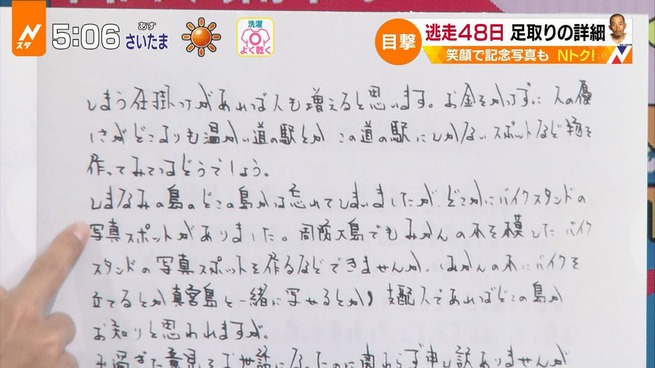 Nスタ
5:06
あす
さいたま
洗濯
よく乾く
目撃
逃走48日 足取りの詳細
笑顔で記念写真も Nトク!
しまう仕掛けがあれば人も増えると思います。お金をかけずに人の優
しさがどこよりも温かい道の駅とか この道の駅にしかないスポットなど物を
作ってみてはどうでしょう。
しまなみの島のどこの島かは忘れてしまいましたが、どこかにバイクスタンドの
写真スポットがありました。周防大島でもみかんの木を模したバイク
スタンドの写真スポットを作るなどできませんか。みかんの木にバイクを
立てるとか真宮島と一緒に写せるとか 支配人であればどこの島か
お知りと思われますが。
過ぎた意見をお世話になったのに関わらず申し訳ありませんが